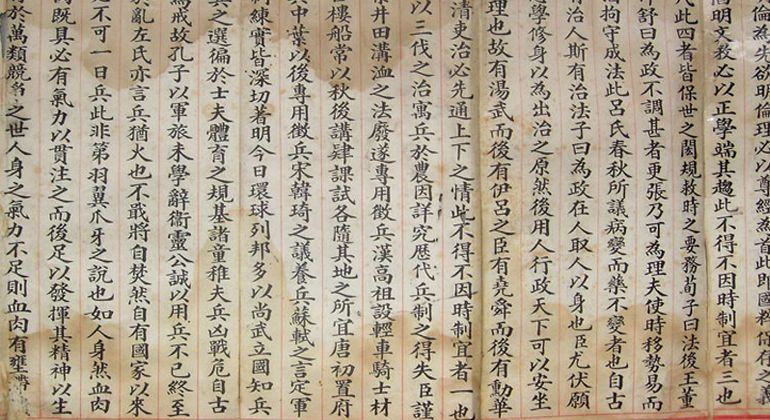 倫為先欲明倫理必以尊經為首此即國粹保存之義
昌明文教必以正學端其趨此不得不因時制宜者三也
代此四者皆保世之閎規救時之要務荀子曰法後王董
舒曰為政不調甚者更張乃可為理夫使時移勢易而
拘守成法此呂氏春秋所議病變而藥不變者也自古
有治人斯有治法子曰為政在人取人以身也臣尤伏願
學修身以為出治之原然後用人行政天下可以安坐
理也故有湯武而後有伊呂之臣有堯舜而後有勳華
清吏治必先通上下之情此不得不因時制宜者一也
以三代之治寓兵於農因詳究歷代兵制之得失臣謹
井田溝洫之法廢遂專用徵兵漢高祖設輕車騎士材
樓船常以秋後講肄課試各隨其地之所宜唐初置府
中葉以後專用徵兵宋韓琦之議養兵蘇軾之言定軍
制練實皆深切著明今日環球列邦多以尚武立國知兵
之選徧於士夫體育之規基諸童稚夫兵凶戰危自古
為戒故孔子以軍旅未學辭衞靈公誠以用兵不已終至
於亂左氏亦言兵猶火也不戢將自焚然自有國家以來
之不可一日兵此非第羽翼爪牙之說也如人身然血肉
既具必有氣力以貫注之而後足以發揮其精神以生
於萬類競爭之世人身之氣力不足則血肉有壅